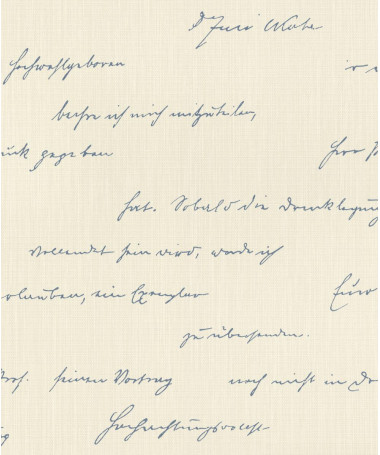 Hochwohlgeboren
beehre ich mich mitzuteilen,
gegeben
hat. Sobald die Drucklegung
vollendet sein wird, werde ich
erlauben, ein Exemplar Euro
zu übersenden.
Prof. seinen Vortrag noch nicht in Dr
Hochachtungsvollst